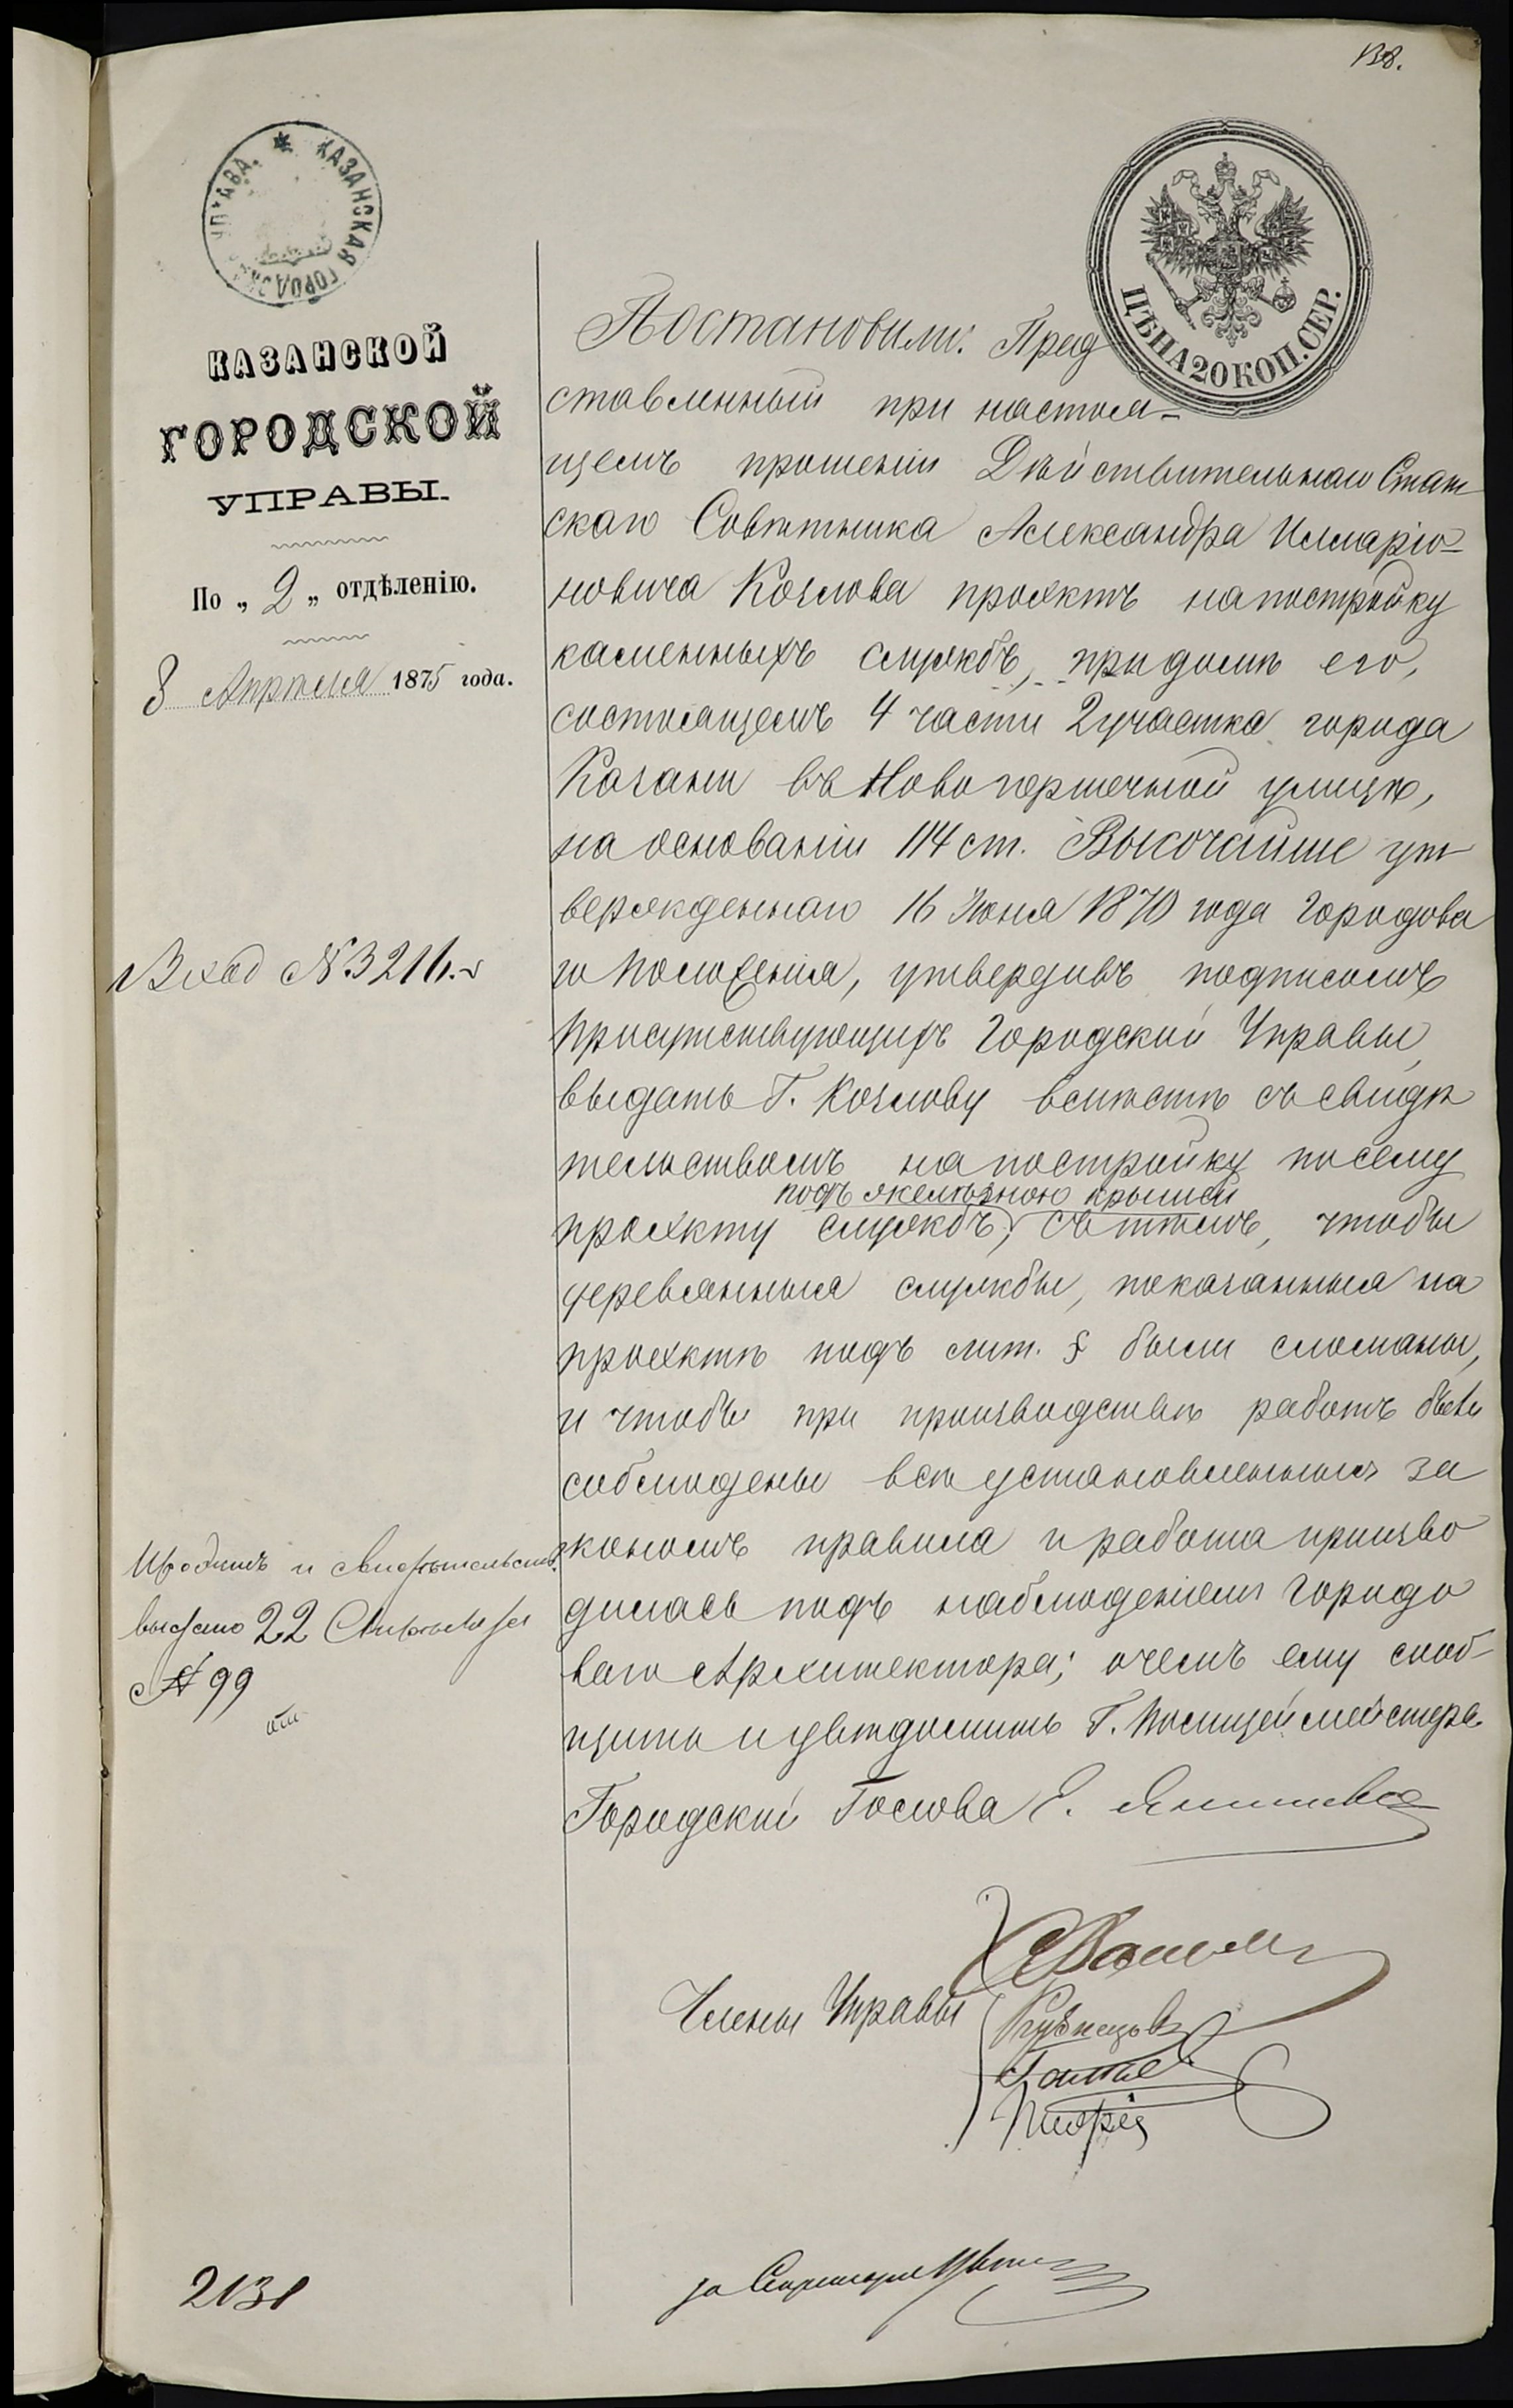 138.
КАЗАНСКАЯ ГОРОДСК УПРАВА.
ЦѢНА 20 КОП. СЕР.
КАЗАНСКОЙ
ГОРОДСКОЙ
УПРАВЫ.
По „ 2 „ отдѣленію.
8 Апрѣля 1875 года.
Вход № 3216.
выдано 22
№ 99
2131
Постановили: Пред
ставленный при настоя-
щемъ прошеніи Дѣйствительнаго Стат
скаго Совѣтника Александра Илларіо-
новича Козлова проэктъ на постройку
каменныхъ службъ, при домѣ его,
состоящемъ 4 части 2 участка города
Казани въ Новогоршечной улицѣ,
на основаніи 114 ст. Высочайше ут
вержденнаго 16 Іюня 1870 года Городова
го Положенія, утвердивъ подписомъ
Присутствующихъ Городской Управы,
выдать Г. Козлову вмѣстѣ съ свидѣ
тельствомъ на постройку по сему
подъ желѣзною крышей
проэкту службъ, съ тѣмъ, чтобы
деревянныя службы, показанныя на
проэктѣ подъ лит. были сломаны,
и чтобы при производствѣ работъ были
соблюдены всѣ установленныя за
кономъ правила и работа произво
дилась подъ наблюденіемъ Городо
ваго Архитектора; о чемъ ему сооб-
щить и увѣдомить Г. Полицеймейстера.
Городской Голова Е. Янишевс
Члены Управы
Кузнецовъ
за Секретаря